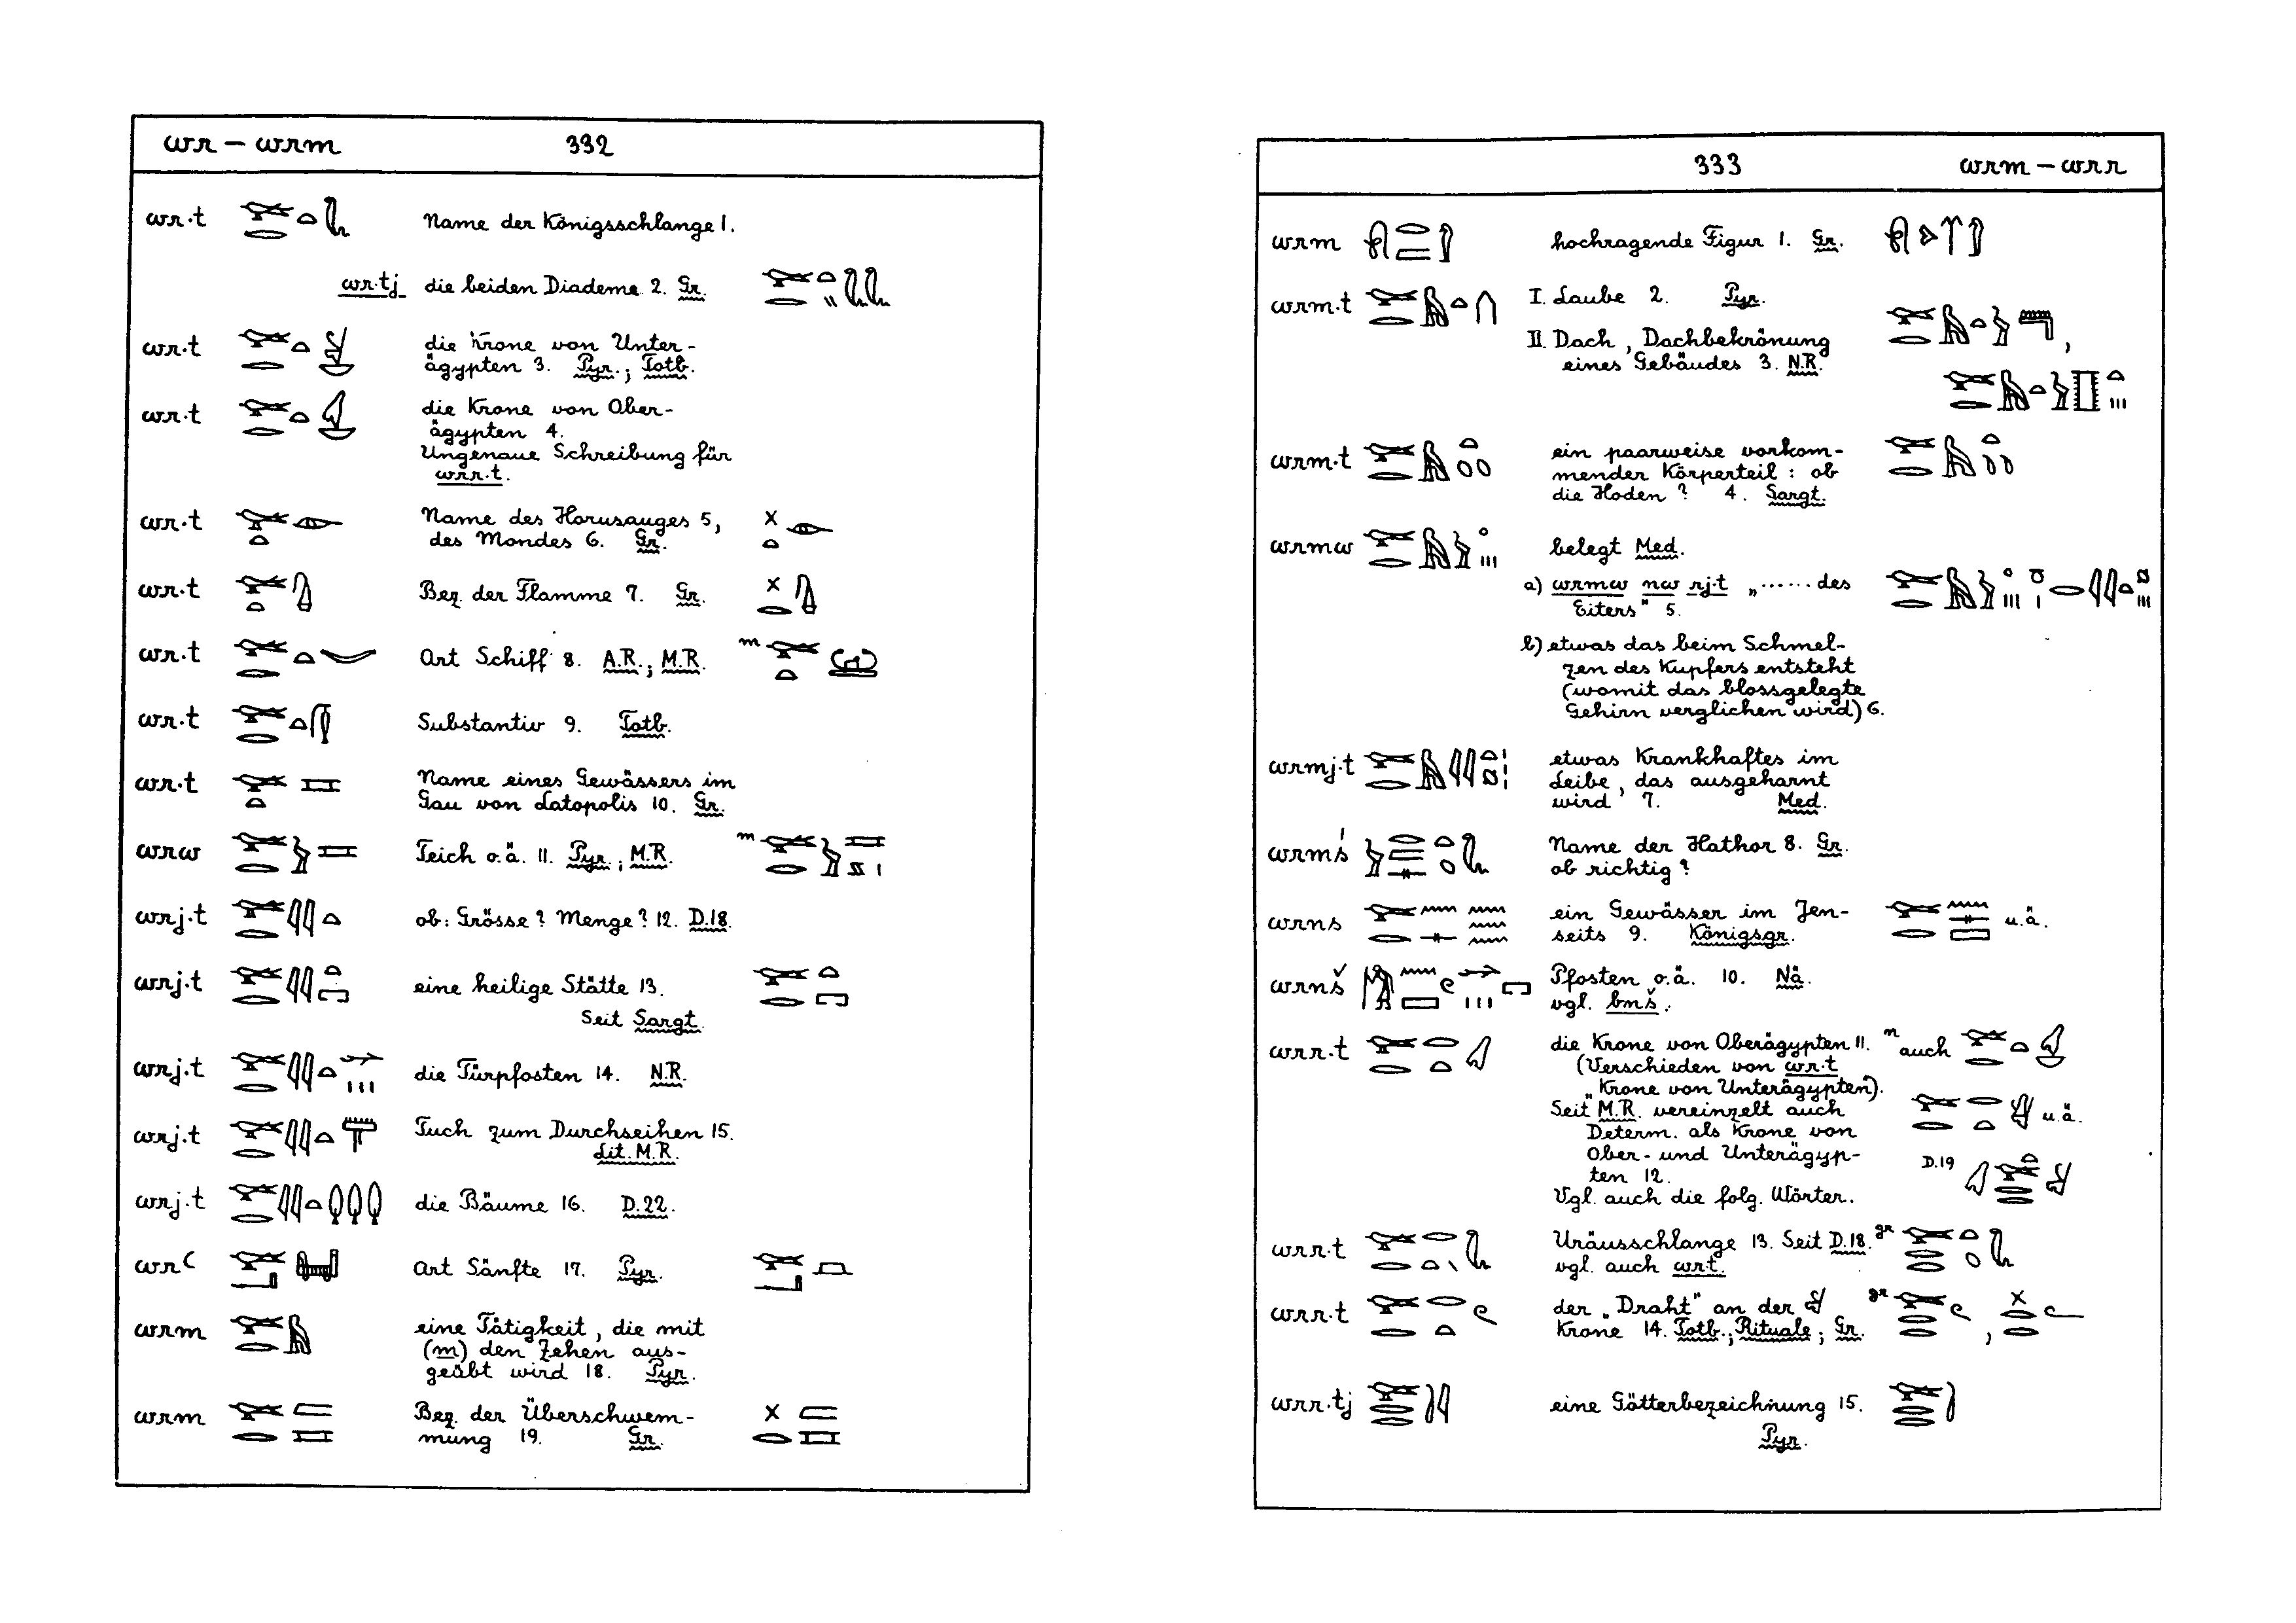 wr – wrm 332
wr·t Name der Königsschlange 1.
wr·tj die beiden Diademe 2. Gr.
wr·t die Krone von Unter-
ägypten 3. Pyr.; Totb.
wr·t die Krone von Ober-
ägypten 4.
Ungenaue Schreibung für
wrr·t.
wr·t Name des Horusauges 5,
des Mondes 6. Gr.
wr·t Bez. der Flamme 7. Gr.
wr·t Art Schiff 8. A.R.; M.R. m
wr·t Substantiv 9. Totb.
wr·t Name eines Gewässers im
Gau von Latopolis 10. Gr.
wrw Teich o.ä. 11. Pyr., M.R. m
wrj·t ob: Grösse? Menge? 12. D.18.
wrj·t eine heilige Stätte 13.
Seit Sargt.
wrj·t die Türpfosten 14. N.R.
wrj·t Tuch zum Durchseihen 15.
Lit. M.R.
wrj·t die Bäume 16. D.22.
wrꜥ Art Sänfte 17. Pyr.
wrm eine Tätigkeit, die mit
(m) den Zehen aus-
geübt wird 18. Pyr.
wrm Bez. der Überschwem-
mung 19. Gr.
333 wrm – wrr
wrm hochragende Figur 1. Gr.
wrm·t I. Laube 2. Pyr.
II. Dach, Dachbekrönung
eines Gebäudes 3. N.R.
wrm·t ein paarweise vorkom-
mender Körperteil: ob
die Hoden? 4. Sargt.
wrmw belegt Med.
a) wrmw nw rj·t „...... des
Eiters" 5.
b) etwas das beim Schmel-
zen des Kupfers entsteht
(womit das blossgelegte
Gehirn verglichen wird) 6.
wrmj·t etwas Krankhaftes im
Leibe, das ausgeharnt
wird 7. Med.
wrmś Name der Hathor 8. Gr.
ob richtig?
wrns ein Gewässer im Jen-
seits 9. Königsgr. u.ä.
wrnš Pfosten o.ä. 10. Nä.
vgl. bnš.
wrr·t die Krone von Oberägypten 11. n auch
(Verschieden von wr·t
„Krone von Unterägypten").
Seit M.R. vereinzelt auch u.ä.
Determ. als Krone von
Ober- und Unterägyp- D.19
ten 12.
Vgl. auch die folg. Wörter.
wrr·t Uräusschlange 13. Seit D.18. gr
vgl. auch wrt.
wrr·t der „Draht" an der gr
Krone 14. Totb.; Rituale; Gr. ,
wrr·tj eine Götterbezeichnung 15.
Pyr.